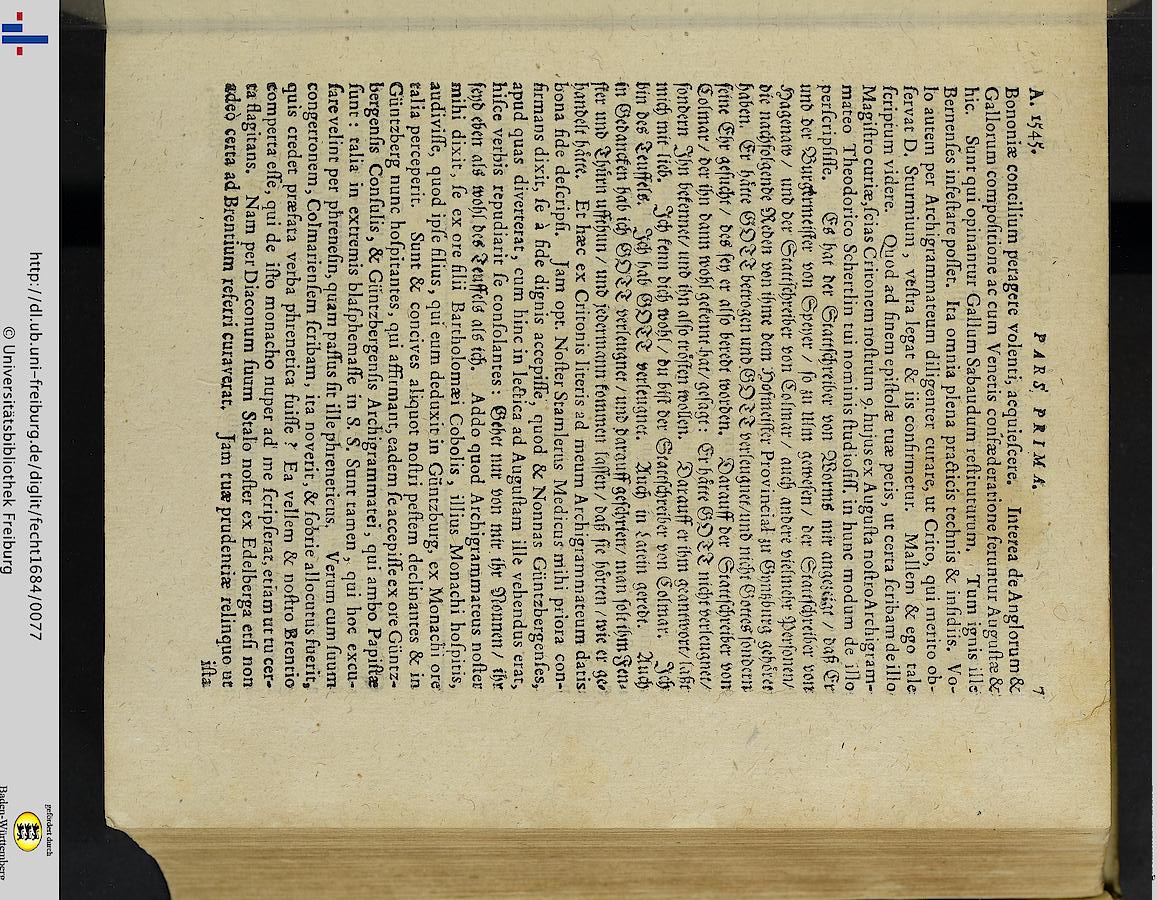 A. 1545. PARS PRIMA. 7
Bononiæ concilium peragere volenti, acquiescere. Interea de Anglorum &
Gallorum compositione ac cum Venetis confœderatione feruntur Augustæ &
hic. Sunt qui opinantur Gallum Sabaudum restituturum. Tum ignis ille
Bernenses infestare posset. Ita omnia plena practicis technis & insidiis. Vo-
lo autem per Archigrammateum diligenter curare, ut Crito, qui merito ob-
servat D. Sturmium, vestra legat & iis confirmetur. Mallem & ego tale
scriptum videre. Quod ad finem epistolæ tuæ petis, ut certa scribam de illo
Magistro curiæ, scias Critonem nostrum 9. hujus ex Augusta nostro Archigram-
mateo Theodorico Schertlin tui nominis studiosiss. in hunc modum de illo
perscripsisse. Es hat der Stattschreiber von Worms mir angezeigt / daß Er
und der Burgermeister von Speyer / so zu Ulm gewesen / der Stattschreiber von
Hagenaw / und der Stattschreiber von Colmar / auch andere vielmehr Personen /
die nachfolgende Reden von ihme dem Hofmeister Provincial zu Gyntzburg gehöret
haben. Er hätte GOTT betrogen und GOTT verleugnet / und nicht Gottes sondern
seine Ehr gesucht / des sey er also beredt worden. Darauff der Stattschreiber von
Colmar / der ihn dann wohl gekennt hat / gesagt: Er hätte GOTT nicht verleugnet /
sondern Ihn bekennet / und ihn also trösten wollen. Darauff er ihm geantwort / laßt
mich mit lieb. Ich kenn dich wohl / du bist der Stattschreiber von Colmar. Ich
bin des Teuffels. Ich hab GOTT verleugnet. Auch in Latein geredt. Auch
in Gedancken hab ich GOTT verleugnet / und darauff geschrien / man solt ihm Fen-
ster und Thüren uffthun / und jedermann kommen lassen / daß sie hörten / wie er ge-
handelt hätte. Et hæc ex Critonis literis ad meum Archigrammateum datis
bona fide descripsi. Jam opt. Noster Stamlerus Medicus mihi priora con-
firmans dixit, se à fide dignis accepisse, quod & Nonnas Güntzbergenses,
apud quas diverterat, cum hinc in lectica ad Augustam ille vehendus erat,
hisce verbis repudiarit se consolantes: Gehet nur von mir ihr Nonnen / ihr
seyd eben als wohl des Teuffels als ich. Addo quod Archigrammateus noster
mihi dixit, se ex ore filii Bartholomæi Cobolis, illius Monachi hospitis,
audivisse, quod ipse filius, qui eum deduxit in Güntzburg, ex Monachi ore
talia perceperit. Sunt & concives aliquot nostri pestem declinantes & in
Güntzberg nunc hospitantes, qui affirmant, eadem se accepisse ex ore Güntz-
bergensis Consulis, & Güntzbergensis Archigrammatei, qui ambo Papistæ
sunt: talia in extremis blasphemasse in S. S. Sunt tamen, qui hoc excu-
sare velint per phrenesin, quam passus sit ille phreneticus. Verum cum suum
congerronem, Colmariensem scribam, ita noverit, & sobrie allocutus fuerit,
quis credet præfata verba phrenetica fuisse? Ea vellem & nostro Brentio
comperta esse, qui de isto monacho nuper ad me scripserat, etiam ut tu cer-
ta flagitans. Nam per Diaconum suum Stalo noster ex Edelberga etsi non
adeò certa ad Brentium referri curaverat. Jam tuæ prudentiæ relinquo ut
ista
http://dl.ub.uni-freiburg.de/diglit/fecht1684/0077
© Universitätsbibliothek Freiburg
gefördert durch
Baden-Württemberg